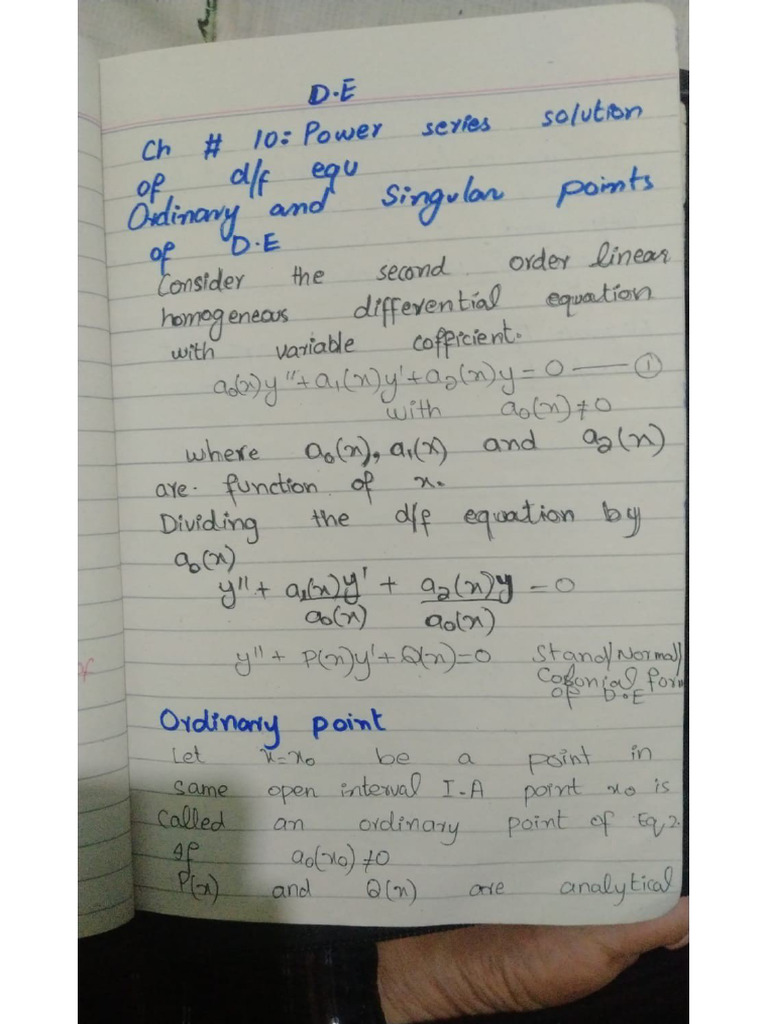 D.E
Ch # 10: Power series solution
of d/f equ
Ordinary and Singular points
of D.E
Consider the second order linear
homogeneous differential equation
with variable cofficient.
a₀(x)y''+a₁(x)y'+a₂(x)y=0 — ①
with a₀(x)≠0
where a₀(x), a₁(x) and a₂(x)
are. function of x.
Dividing the d/f equation by
a₀(x)
y''+ a₁(x)y'/a₀(x) + a₂(x)y/a₀(x) =0
y''+ P(x)y'+Q(x)=0 Stand/Normal/
Cononial form
of D.E
Ordinary point
Let x=x₀ be a point in
same open interval I-A point x₀ is
called an ordinary point of Eq 2.
If a₀(x₀)≠0
P(x) and Q(x) are analytical